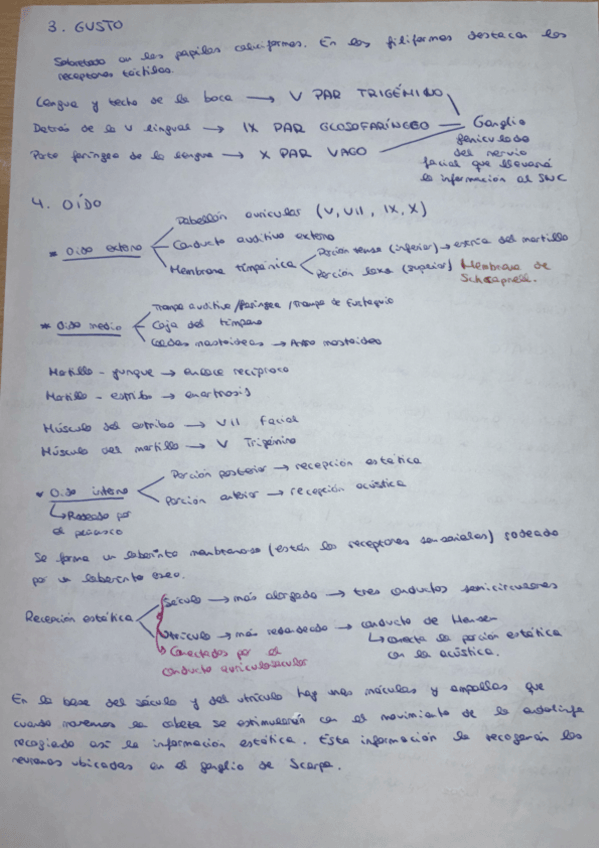 3. GUSTO
Sobretodo en las papilas caliciformes. En las filiformes destacan los
receptores táctiles.
Lengua y techo de la boca → V PAR TRIGÉMINO
Detrás de la V lingual → IX PAR GLOSOFARÍNGEO
Parte faríngea de la lengua → X PAR VAGO
Ganglio
geniculado
del nervio
facial que llevará
la información al SNC
4. OÍDO
* Oído externo
Pabellón auricular (V, VII, IX, X)
Conducto auditivo externo
Membrana timpánica
Porción tensa (inferior) → espina del martillo
Porción laxa (superior) Membrana de
Schrapnell.
* Oído medio
Trompa auditiva/faríngea/Trompa de Eustaquio
Caja del tímpano
Celdas mastoideas → Antro mastoideo
Martillo - yunque → encaje recíproco
Martillo - estribo → enartrosis
Músculo del estribo → VII Facial
Músculo del martillo → V Trigémino
* Oído interno
↳ Rodeado por
el peñasco
Porción posterior → recepción estática
Porción anterior → recepción acústica
Se forma un laberinto membranoso (están los receptores sensoriales) rodeado
por un laberinto óseo.
Recepción estática
Sáculo → más alargado → tres conductos semicirculares
Utrículo → más redondeado → conducto de Hensen
↳ conecta la porción estática
con la acústica.
↳ Conectados por el
conducto utriculosacular
En la base del sáculo y del utrículo hay unas máculas y ampollas que
cuando movemos la cabeza se estimularán con el movimiento de la endolinfa
recogiendo así la información estática. Esta información la recogerán las
neuronas ubicadas en el ganglio de Scarpa.